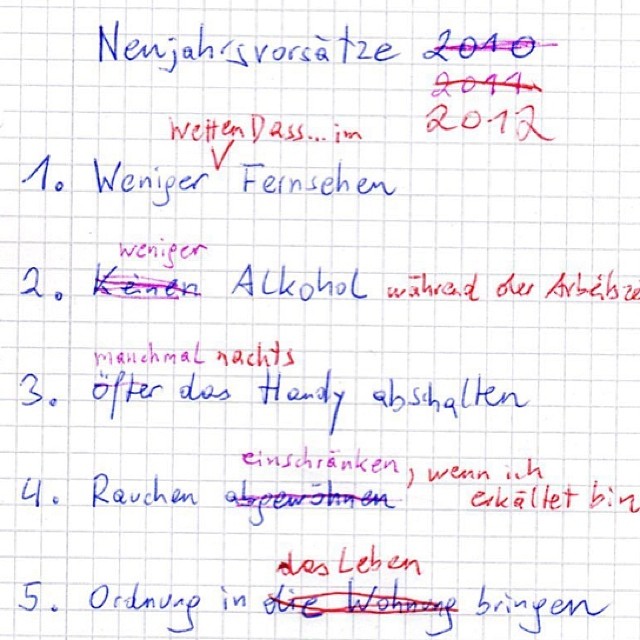 Neujahrsvorsätze 2010
2011
2012
Wetten Dass... im
1. Weniger Fernsehen
weniger
2. Keinen Alkohol während der Arbeitsze
manchmal nachts
3. öfter das Handy abschalten
einschränken, wenn ich
4. Rauchen abgewöhnen erkältet bin
das Leben
5. Ordnung in die Wohnung bringen